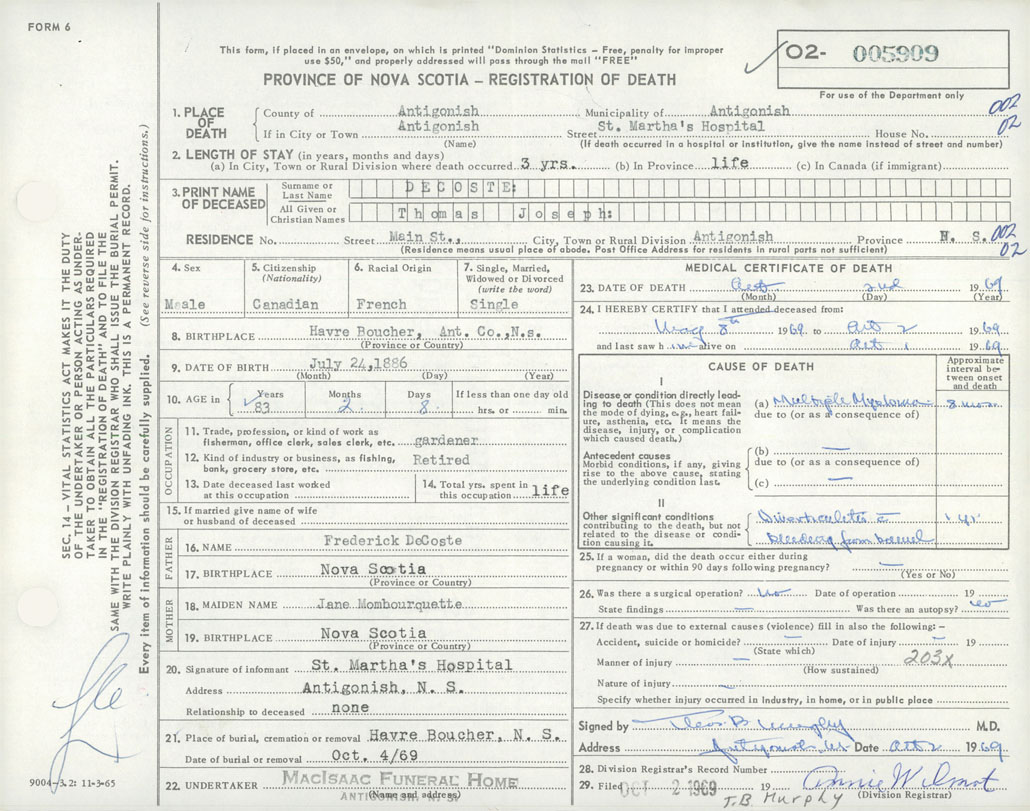 FORM 6
This form, if placed in an envelope, on which is printed "Dominion Statistics – Free, penalty for improper
use $50," and properly addressed will pass through the mail "FREE"
PROVINCE OF NOVA SCOTIA – REGISTRATION OF DEATH
02- 005909
For use of the Department only
1. PLACE OF DEATH
County of Antigonish Municipality of Antigonish 002
If in City or Town Antigonish Street St. Martha's Hospital House No. 02
(Name) (If death occurred in a hospital or institution, give the name instead of street and number)
2. LENGTH OF STAY (in years, months and days)
(a) In City, Town or Rural Division where death occurred 3 yrs. (b) In Province life (c) In Canada (if immigrant)
3. PRINT NAME OF DECEASED
Surname or Last Name DECOSTE:
All Given or Christian Names Thomas Joseph:
RESIDENCE No. Street Main St., City, Town or Rural Division Antigonish Province N. S. 002
(Residence means usual place of abode. Post Office Address for residents in rural parts not sufficient) 02
4. Sex
Male
5. Citizenship
(Nationality)
Canadian
6. Racial Origin
French
7. Single, Married,
Widowed or Divorced
(write the word)
Single
8. BIRTHPLACE Havre Boucher, Ant. Co.,N.s.
(Province or Country)
9. DATE OF BIRTH July 24,1886
(Month) (Day) (Year)
10. AGE in
Years Months Days If less than one day old
83 2 8 hrs. or min.
OCCUPATION
11. Trade, profession, or kind of work as
fisherman, office clerk, sales clerk, etc. gardener
12. Kind of industry or business, as fishing,
bank, grocery store, etc. Retired
13. Date deceased last worked
at this occupation
14. Total yrs. spent in
this occupation life
15. If married give name of wife
or husband of deceased
FATHER
16. NAME Frederick DeCoste
17. BIRTHPLACE Nova Scotia
(Province or Country)
MOTHER
18. MAIDEN NAME Jane Mombourquette
19. BIRTHPLACE Nova Scotia
(Province or Country)
20. Signature of informant St. Martha's Hospital
Address Antigonish, N. S.
Relationship to deceased none
21. Place of burial, cremation or removal Havre Boucher, N. S.
Date of burial or removal Oct. 4/69
22. UNDERTAKER MACISAAC FUNERAL HOME
(Name and address)
MEDICAL CERTIFICATE OF DEATH
23. DATE OF DEATH Oct 2nd 1969
(Month) (Day) (Year)
24. I HEREBY CERTIFY that I attended deceased from:
May 8th 1969 to Oct 2 1969
and last saw him alive on Oct 1 1969
CAUSE OF DEATH
Approximate
interval be-
tween onset
and death
I
Disease or condition directly lead-
ing to death (This does not mean
the mode of dying, e.g., heart fail-
ure, asthenia, etc. It means the
disease, injury, or complication
which caused death.)
(a) Multiple Myeloma 8 mos
due to (or as a consequence of)
Antecedent causes
Morbid conditions, if any, giving
rise to the above cause, stating
the underlying condition last.
(b) —
due to (or as a consequence of)
(c) —
II
Other significant conditions
contributing to the death, but not
related to the disease or condi-
tion causing it.
Diverticulitis c̄
bleeding from bowel
25. If a woman, did the death occur either during
pregnancy or within 90 days following pregnancy? —
(Yes or No)
26. Was there a surgical operation? no Date of operation 19
State findings — Was there an autopsy? no
27. If death was due to external causes (violence) fill in also the following: –
Accident, suicide or homicide? — Date of injury — 19
(State which)
Manner of injury — 203X
(How sustained)
Nature of injury —
Specify whether injury occurred in Industry, in home, or in public place
Signed by Thos. B Murphy M.D.
Address Antigonish, NS Date Oct 2 1969
28. Division Registrar's Record Number
29. Filed OCT 2 1969 19 Annie Wilmot
(Division Registrar)
T.B. Murphy
SEC. 14 – VITAL STATISTICS ACT MAKES IT THE DUTY
OF THE UNDERTAKER OR PERSON ACTING AS UNDER-
TAKER TO OBTAIN ALL THE PARTICULARS REQUIRED
IN THE "REGISTRATION OF DEATH" AND TO FILE THE
SAME WITH THE DIVISION REGISTRAR WHO SHALL ISSUE THE BURIAL PERMIT.
WRITE PLAINLY WITH UNFADING INK. THIS IS A PERMANENT RECORD.
Every item of information should be carefully supplied. (See reverse side for instructions.)
9004-3.2: 11-3-65